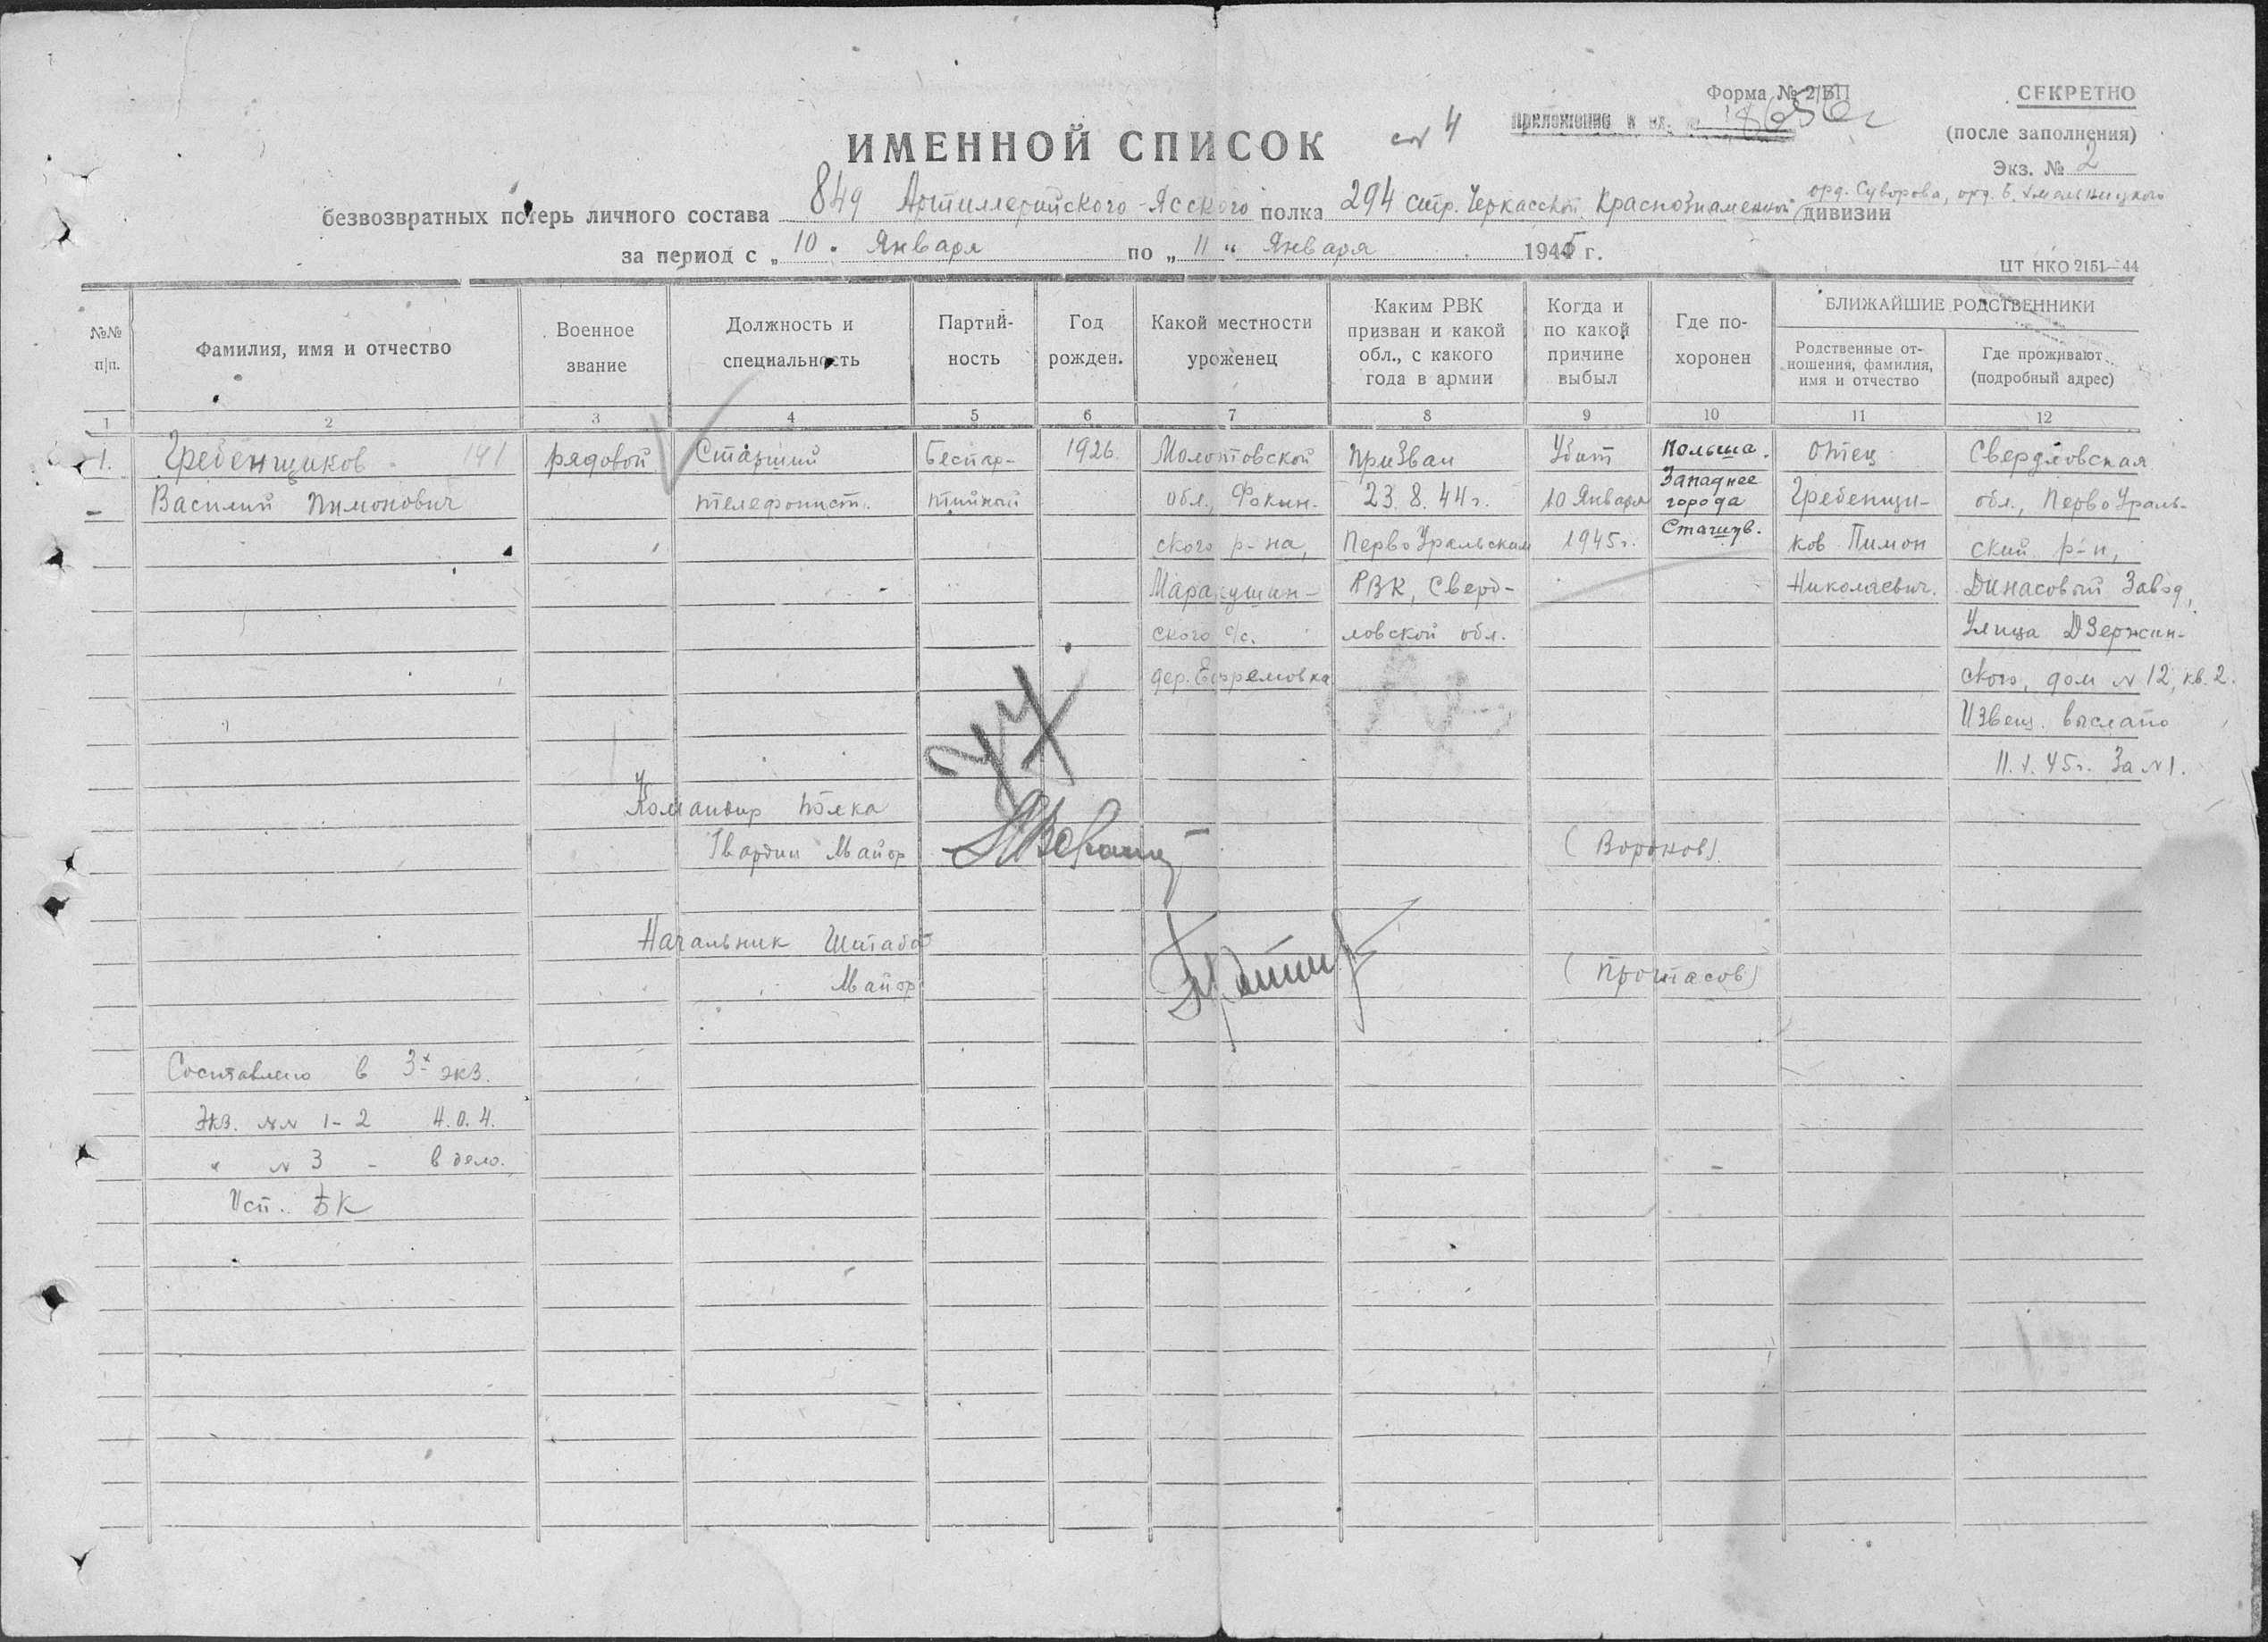 Форма № 2/БП
СЕКРЕТНО
(после заполнения)
Экз. № 2
ИМЕННОЙ СПИСОК
безвозвратных потерь личного состава 849 Артиллерийского-Ясского полка 294 стр. Черкасской Краснознаменной орд. Суворова, орд. Б. Хмельницкого дивизии
за период с „ 10 " Января по „ 11 " Января 1945 г.
ЦТ НКО 2151—44
№№ п/п.
Фамилия, имя и отчество
Военное звание
Должность и специальность
Партий-
ность
Год рожден.
Какой местности уроженец
Каким РВК
призван и какой
обл., с какого
года в армии
Когда и
по какой
причине
выбыл
Где по-
хоронен
БЛИЖАЙШИЕ РОДСТВЕННИКИ
Родственные от-
ношения, фамилия,
имя и отчество
Где проживают
(подробный адрес)
1 2 3 4 5 6 7 8 9 10 11 12
1.
Гребенщиков 141
Василий Пимонович
рядовой
Старший
телефонист.
Беспар-
тийный
1926.
Молотовской
обл., Фокин-
ского р-на,
Маракушин-
ского с/с.
дер. Ефремовка
Призван
23.8.44г.
ПервоУральским
РВК, Сверд-
ловской обл.
Убит
10 Января
1945г.
Польша.
Западнее
города
Сташув.
Отец
Гребенщи-
ков Пимон
Николаевич.
Свердловская
обл., ПервоУраль-
ский р-н,
Динасовый Завод,
Улица Дзержин-
ского, дом № 12, кв. 2.
Извещ. выслано
11.1.45г. За №1.
Командир полка
Гвардии Майор
(Воронов)
Начальник Штаба
Майор
(Протасов)
Составлено в 3х экз.
Экз. №№ 1-2 4.0.4.
" № 3 - в дело.
Исп. БК